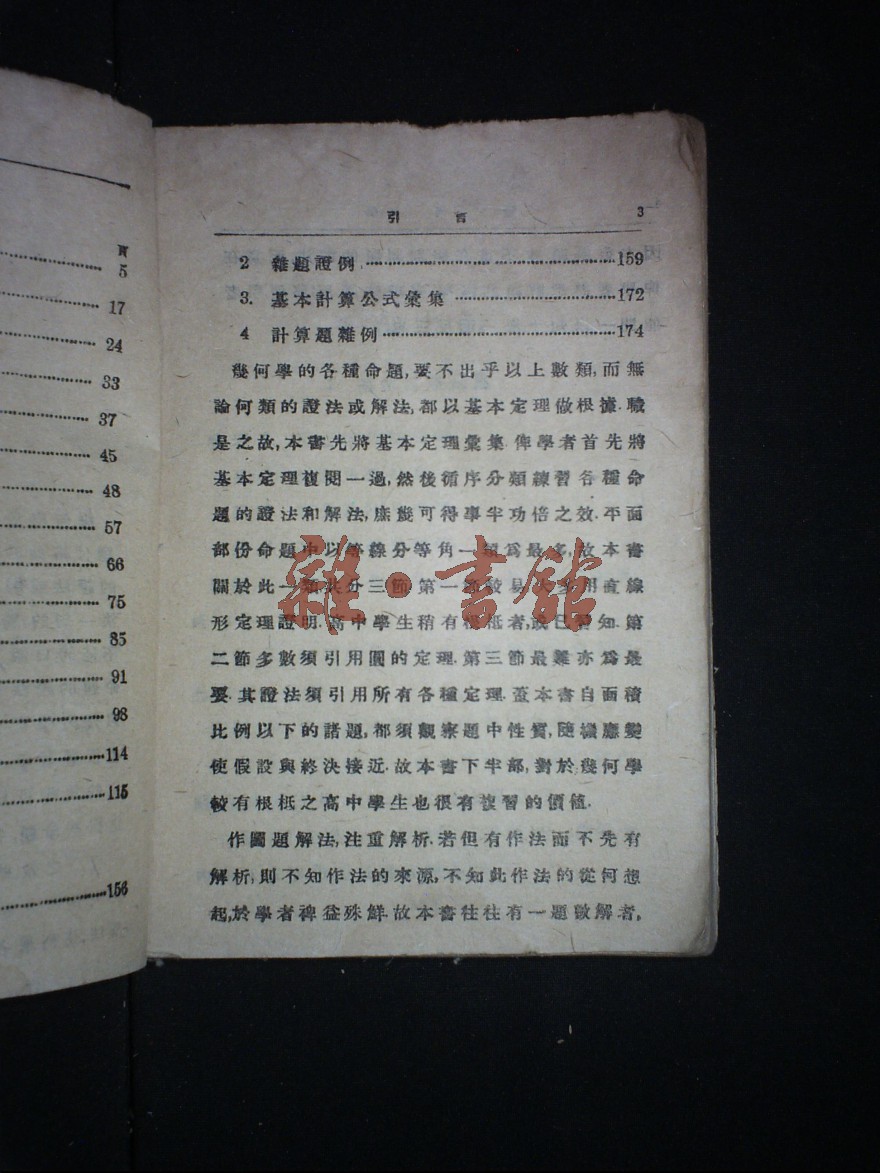 頁
5
17
24
33
37
45
48
57
66
75
85
91
98
114
115
156
引言 3
2 雜題證例 159
3. 基本計算公式彙集 172
4 計算題雜例 174
幾何學的各種命題,要不出乎以上數類,而無
論何類的證法或解法,都以基本定理做根據.職
是之故,本書先將基本定理彙集俾學者首先將
基本定理複閱一過,然後循序分類練習各種命
題的證法和解法,庶幾可得事半功倍之效.平面
部份命題中以等線分等角一類爲最多,故本書
關於此一類共分三節.第一節較易大多用直線
形定理證明.高中學生稍有根柢者,或已習知.第
二節多數須引用圓的定理.第三節最難亦爲最
要.其證法須引用所有各種定理.蓋本書自面積
比例以下的諸題,都須觀察題中性質,隨機應變
使假設與終決接近.故本書下半部,對於幾何學
較有根柢之高中學生也很有複習的價値.
作圖題解法,注重解析.若但有作法而不先有
解析,則不知作法的來源,不知此作法的從何想
起,於學者裨益殊鮮.故本書往往有一題數解者,
雜·書館